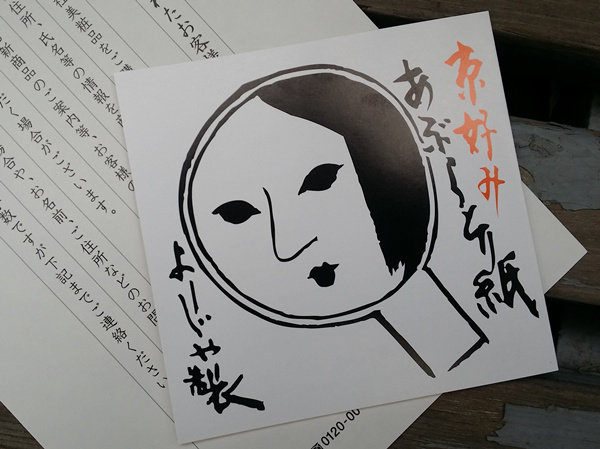 京好み
あぶらとり紙
よーじや製
れたお客様
社美粧品をご
住所、氏名等の情報を
新商品のご案内等、お客様の
だく場合がございます。
場合や、お名前、ご住所などのお問
数ですが下記までご連絡ください
0120-00